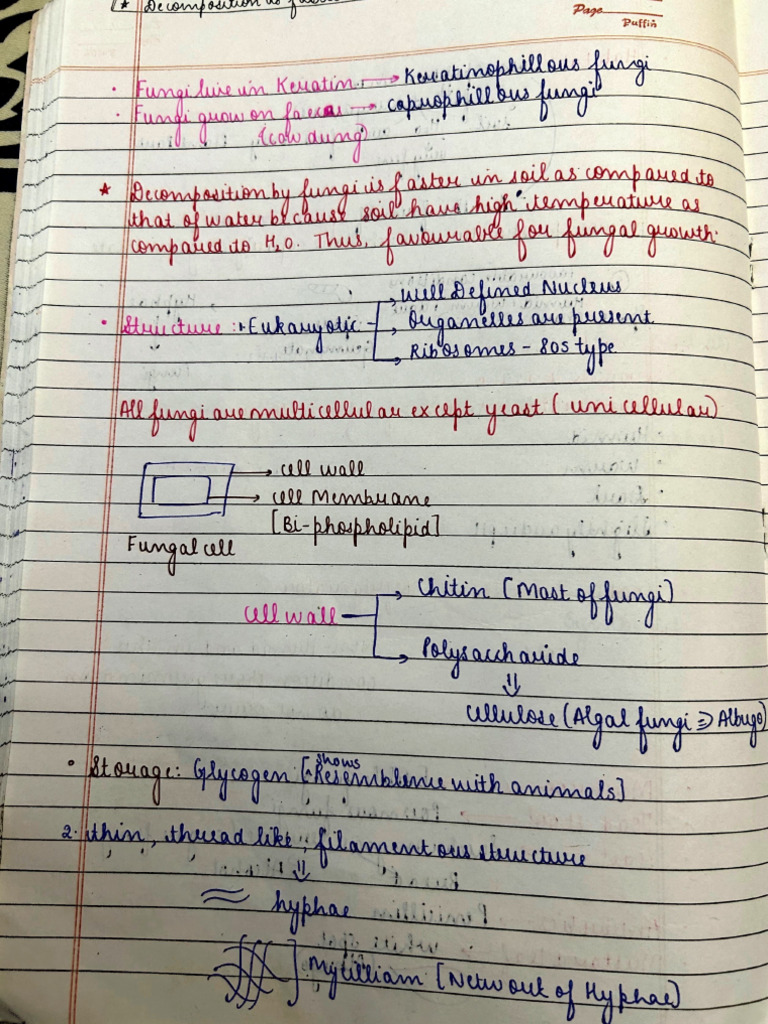 * Decomposition is faste
Page
Puffin
· Fungi live in Keratin → Keratinophillous fungi
· Fungi grow on faecas → caprophillous fungi
(cow dung)
* Decomposition by fungi is faster in soil as compared to
that of water because soil have high temperature as
compared to H2O. Thus, favourable for fungal growth.
well Defined Nucleus
· Structure :→ Eukaryotic → Organelles are present
Ribosomes - 80s type
All fungi are multicellular except yeast (unicellular)
→ cell wall
→ cell Membrane
[Bi-phospholipid]
Fungal cell
→ Chitin [Mast of fungi]
cell wall
→ Polysaccharide
⇓
cellulose (Algal fungi ⇒ Albugo)
shows
• Storage: Glycogen [Resemblence with animals]
2. thin, thread like, filamentous structure
⇓
hyphae
Mycilliam [Network of Hyphae]